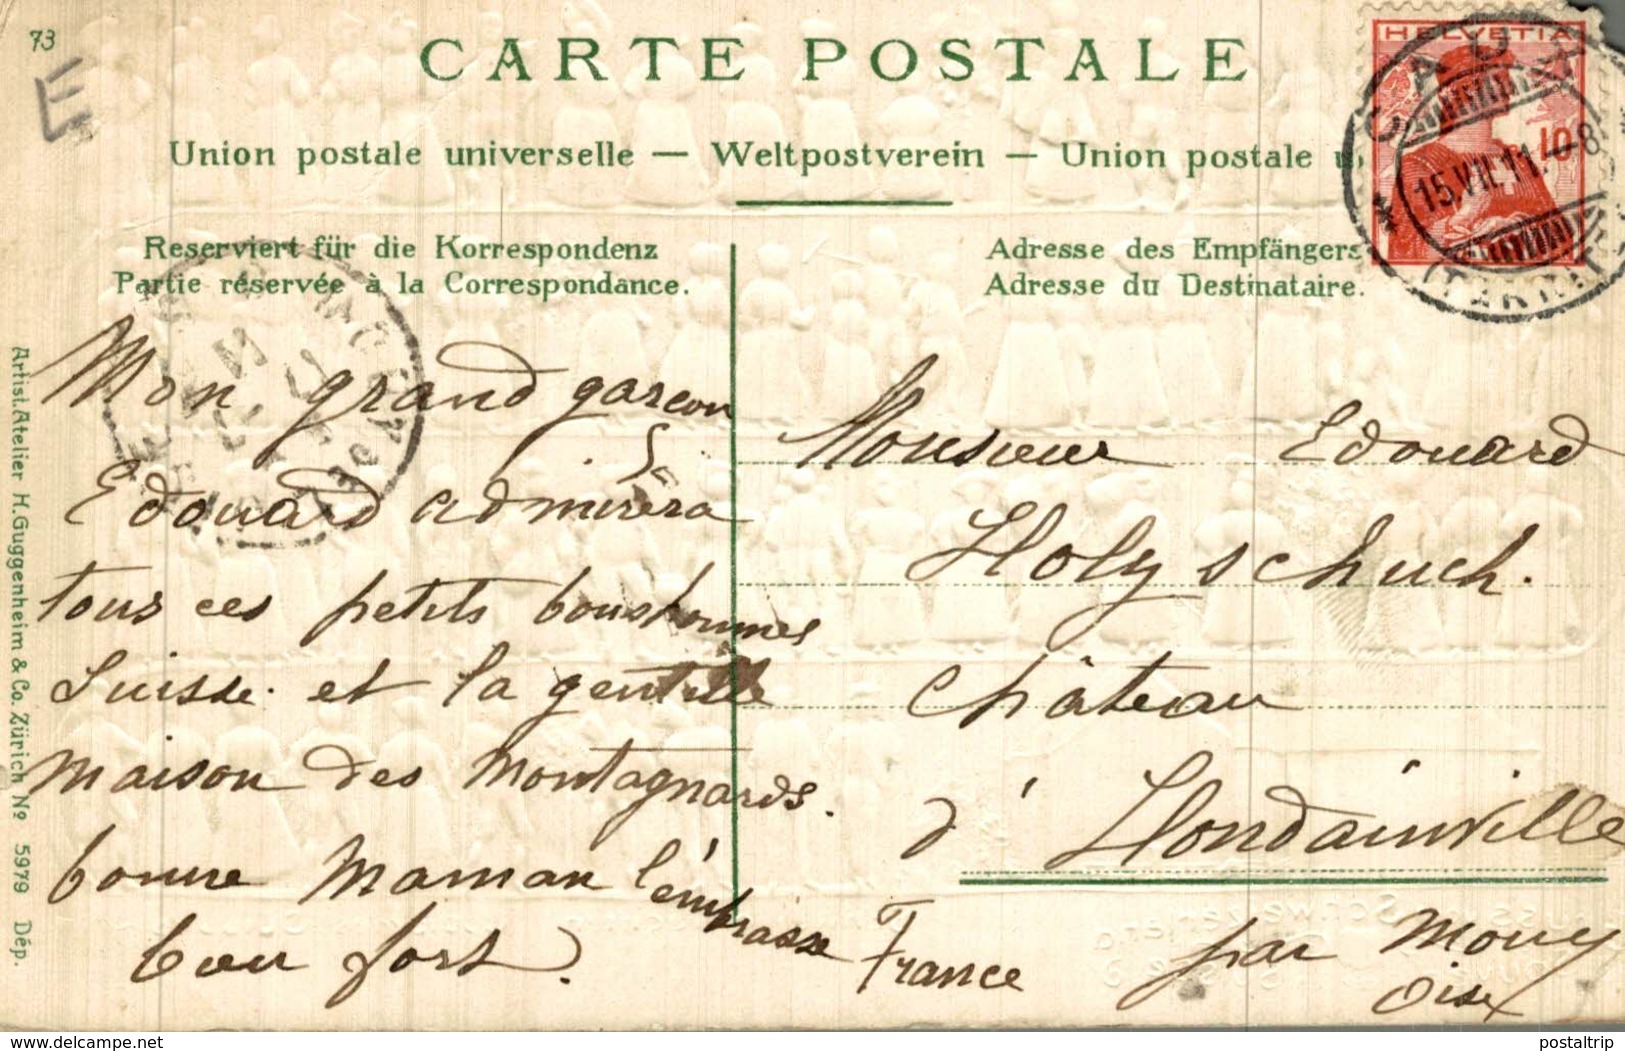 73
E
CARTE POSTALE
Union postale universelle — Weltpostverein — Union postale u
HELVETIA
10
15.VII.11.–8
Reserviert für die Korrespondenz
Partie réservée à la Correspondance.
Adresse des Empfängers
Adresse du Destinataire.
Mon grand garçon
Edouard admirera
tous ces petits bonshommes
Suisse. et la gentille
maison des montagnards.
bonne maman t'embrasse
bien fort.
Monsieur Edouard
Holyschuch.
Château
d' Hondainville
France par Mouy
Oise
Artist.Atelier H.Guggenheim & Co. Zürich No 5979 Dép.
www.delcampe.net
postaltrip